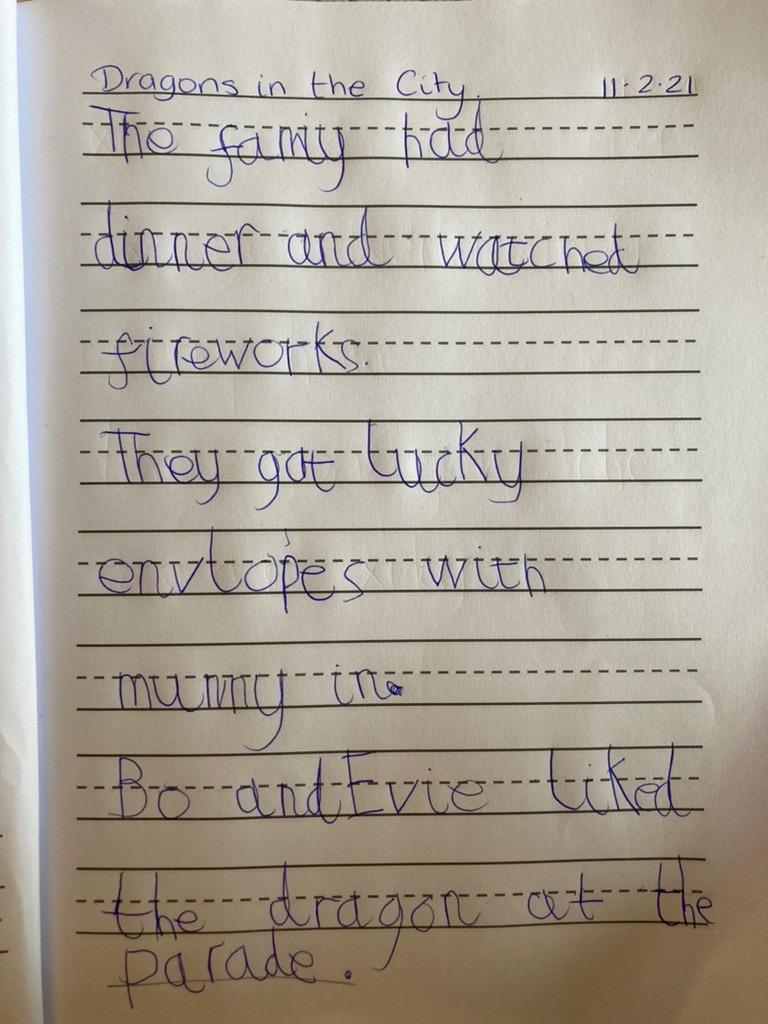 Dragons in the City. 11.2.21
The famiy had
dinner and watched
fireworks.
They got lucky
envlopes with
munny in.
Bo and Evie liked
the dragon at the
parade.